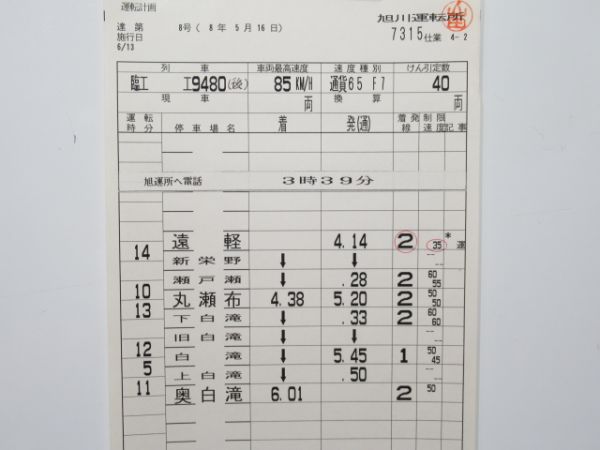 運転計画
達 第 8号( 8年 5月16日)
施行日
6/13
旭川運転所
7315仕業 4-2
列車 車両最高速度 速度種別 けん引定数
臨工 工9480(後) 85KM/H 通貨65 F7 40
現車 両 換算 両
運転時分 停車場名 着 発(通) 着発線 制限速度 記事
旭運所へ電話 3時39分
遠軽 4.14 2 35 * 運
14
新栄野 ↓ ↓ -- --
瀬戸瀬 ↓ .28 2 60 55
10
丸瀬布 4.38 5.20 2 50 50
13
下白滝 ↓ .33 2 60 60
旧白滝 ↓ ↓ -- --
12
白滝 ↓ 5.45 1 50 45
5
上白滝 ↓ .50 -- --
11
奥白滝 6.01 2 50